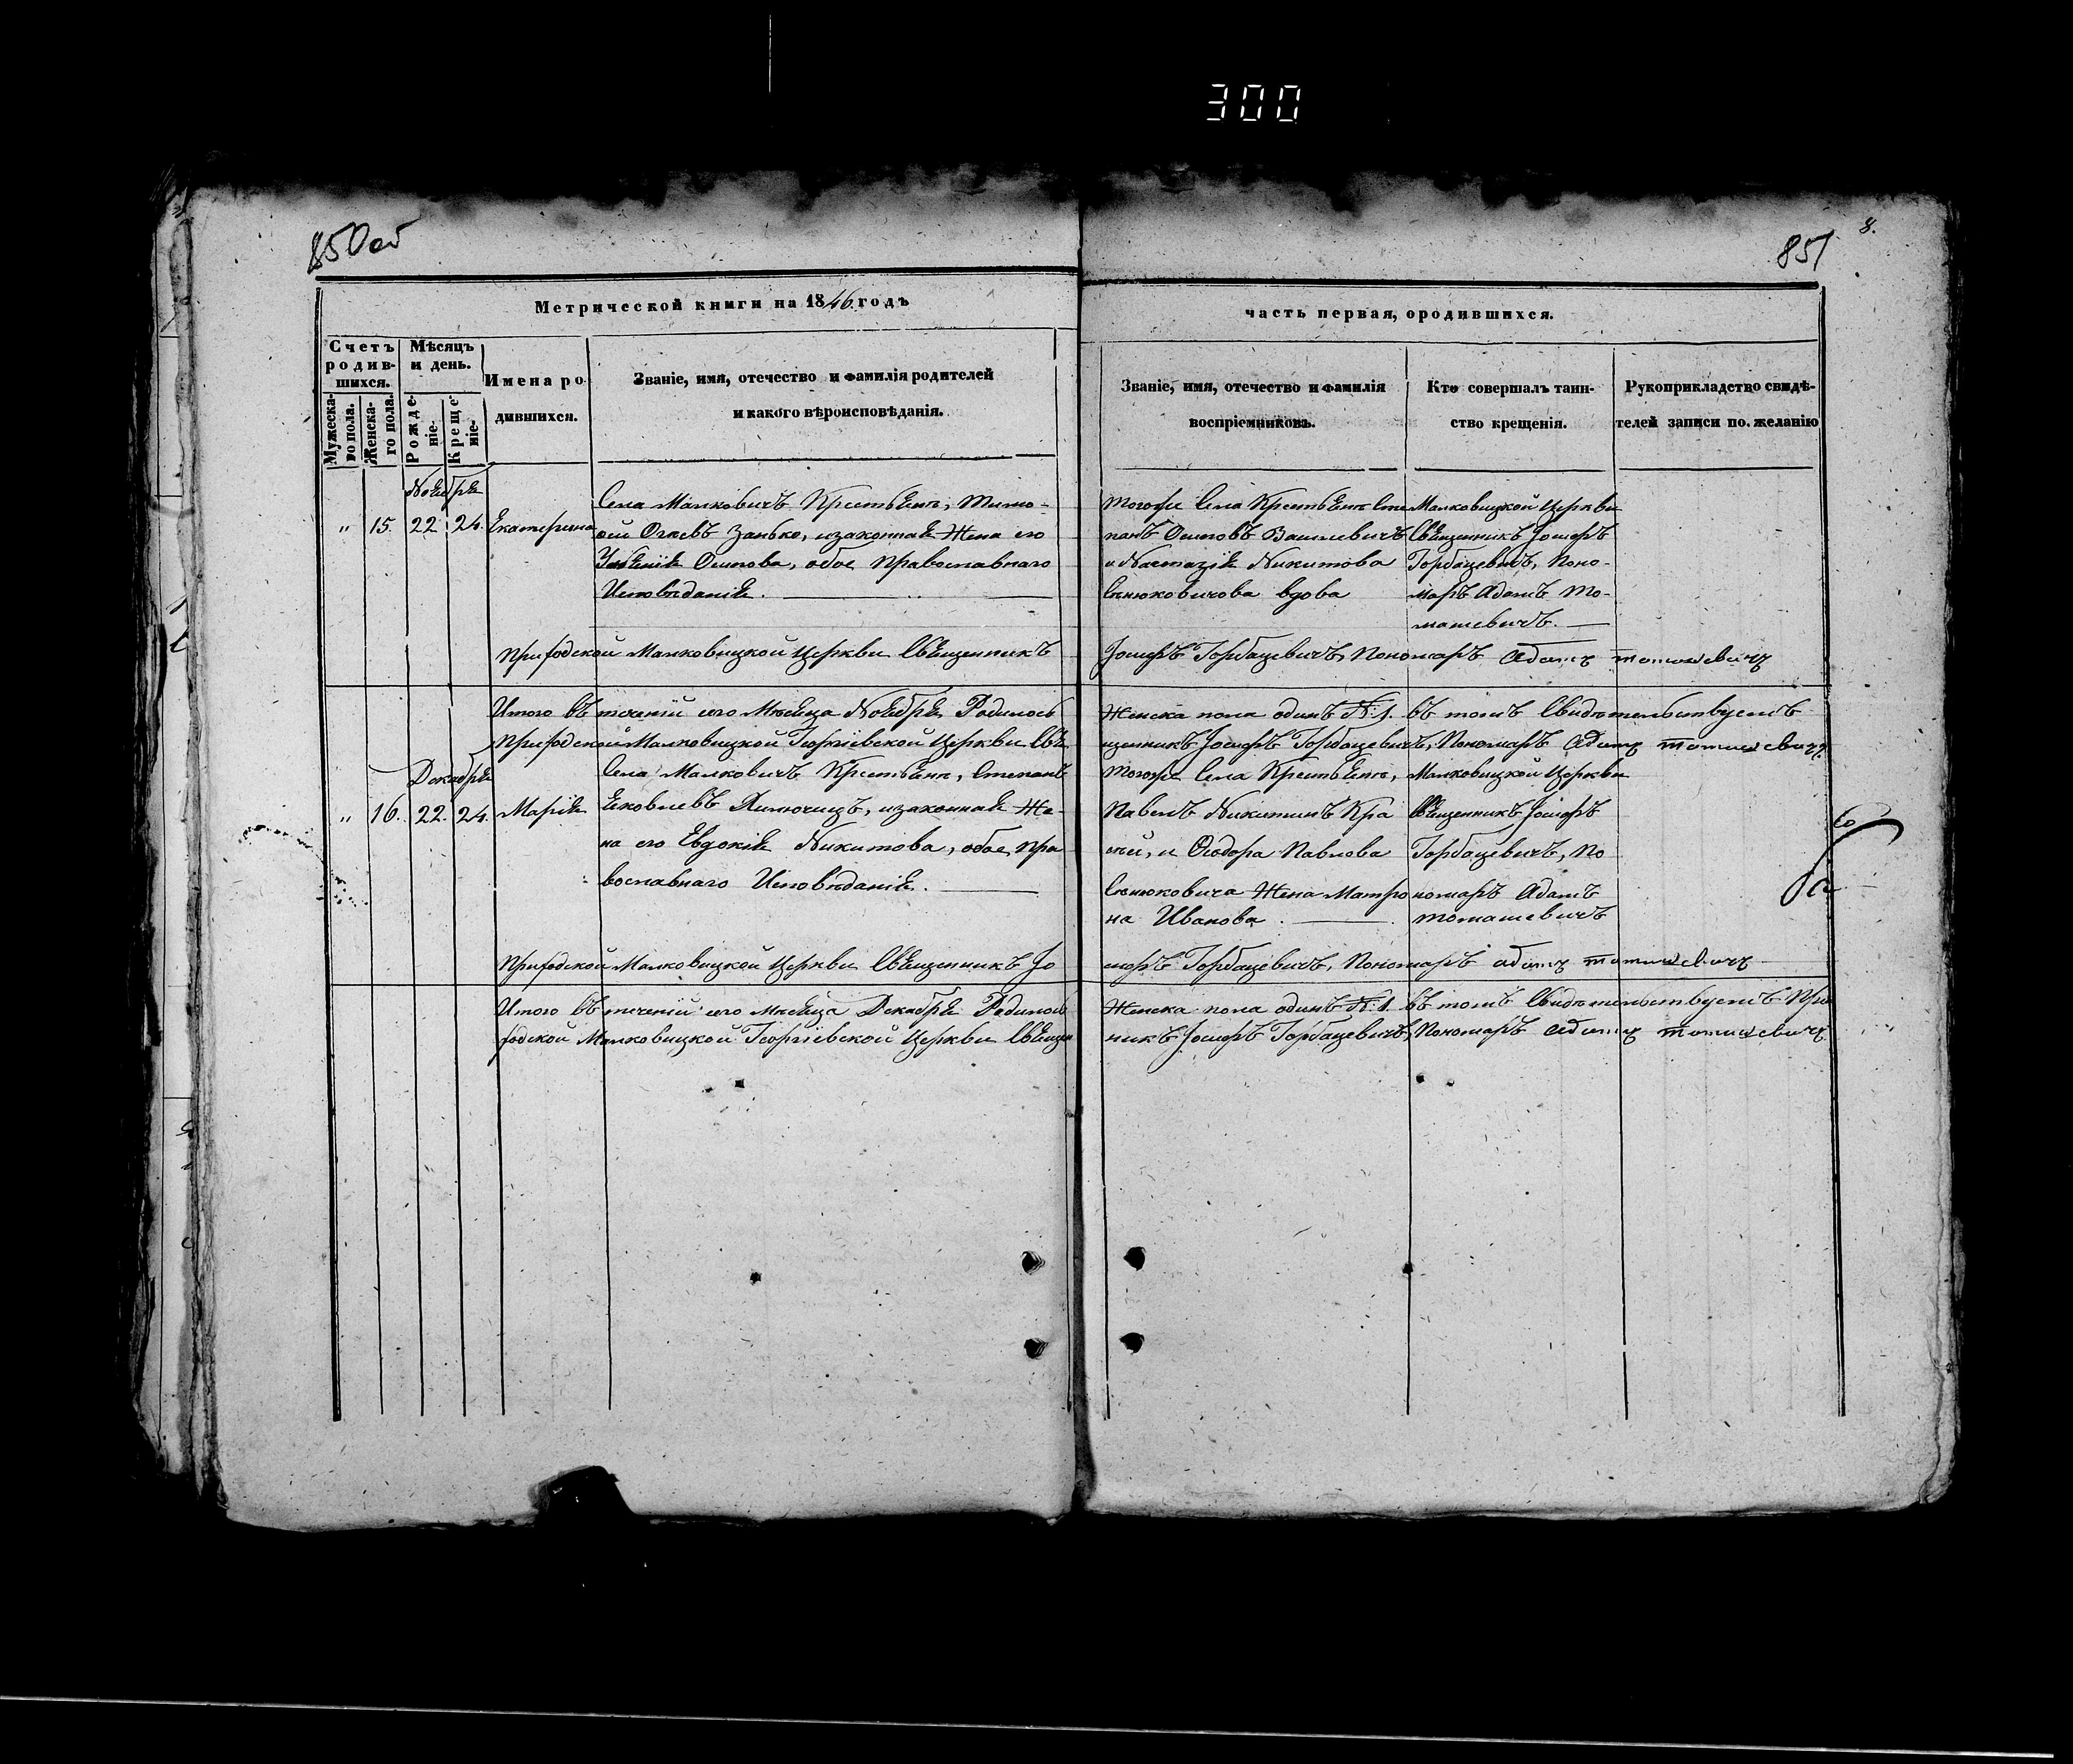 300
850 об
851
8.
Метрической книги на 1846 годъ
часть первая, ородившихся.
Счетъ родив-шихся.
Мужеска-го пола.
Женска-го пола.
Мѣсяцъ и день.
Рожде-ніе.
Креще-ніе.
Имена ро-
дившихся.
Званіе, имя, отечество и фамилія родителей
и какого вѣроисповѣданія.
Званіе, имя, отечество и фамилія
воспріемниковъ.
Кто совершалъ таин-
ство крещенія.
Рукоприкладство свидѣ-
телей записи по желанію
Ноября
" 15. 22 24. Екатерина
Села Малковичъ Крестьянъ, Тимо-
ѳей Занько, изаконная Жена его
Осипова, обое Православнаго
Исповѣданія.
тогоже Села Крестьянъ Сте
панъ Осиповъ Василевичъ
и Настазія Никитова
Сенюковичова вдова
Малковицкой Церкви
Священникъ Іосифъ
Горбацевичъ, Поно-
маръ Адамъ То-
машевичъ.
Приходской Малковицкой Церкви Священникъ Іосифъ Горбацевичъ, Пономаръ Адамъ Томашевичъ
Итого въ теченіи сего Мѣсяца Ноября Родилось Женска пола одинъ №:1. въ томъ Свидѣтельствуемъ
Приходской Малковицкой Георгіевской Церкви Свя щенникъ Іосифъ Горбацевичъ, Пономаръ Адамъ Томашевичъ.
Декабря
" 16. 22. 24. Марія
Села Малковичъ Крестьянъ, Степанъ
Яковлевъ изаконная Же-
на его Евдокія Никитова, обое Пра
вославнаго Исповѣданія.
тогоже Села Крестьянъ,
Павелъ Никитинъ Кра
и Ѳеодора Павлова
Сенюковича Жена Матро
на Иванова.
Малковицкой Церкви
Священникъ Іосифъ
Горбацевичъ, По
номаръ Адамъ
Томашевичъ
Приходской Малковицкой Церкви Священникъ Іо сифъ Горбацевичъ, Пономаръ Адамъ Томашевичъ
Итого въ теченіи сего мѣсяца Декабря Родилось Женска пола одинъ №:1. въ томъ Свидѣтельствуемъ При
ходской Малковицкой Георгіевской Церкви Священ никъ Іосифъ Горбацевичъ, Пономаръ Адамъ Томашевичъ